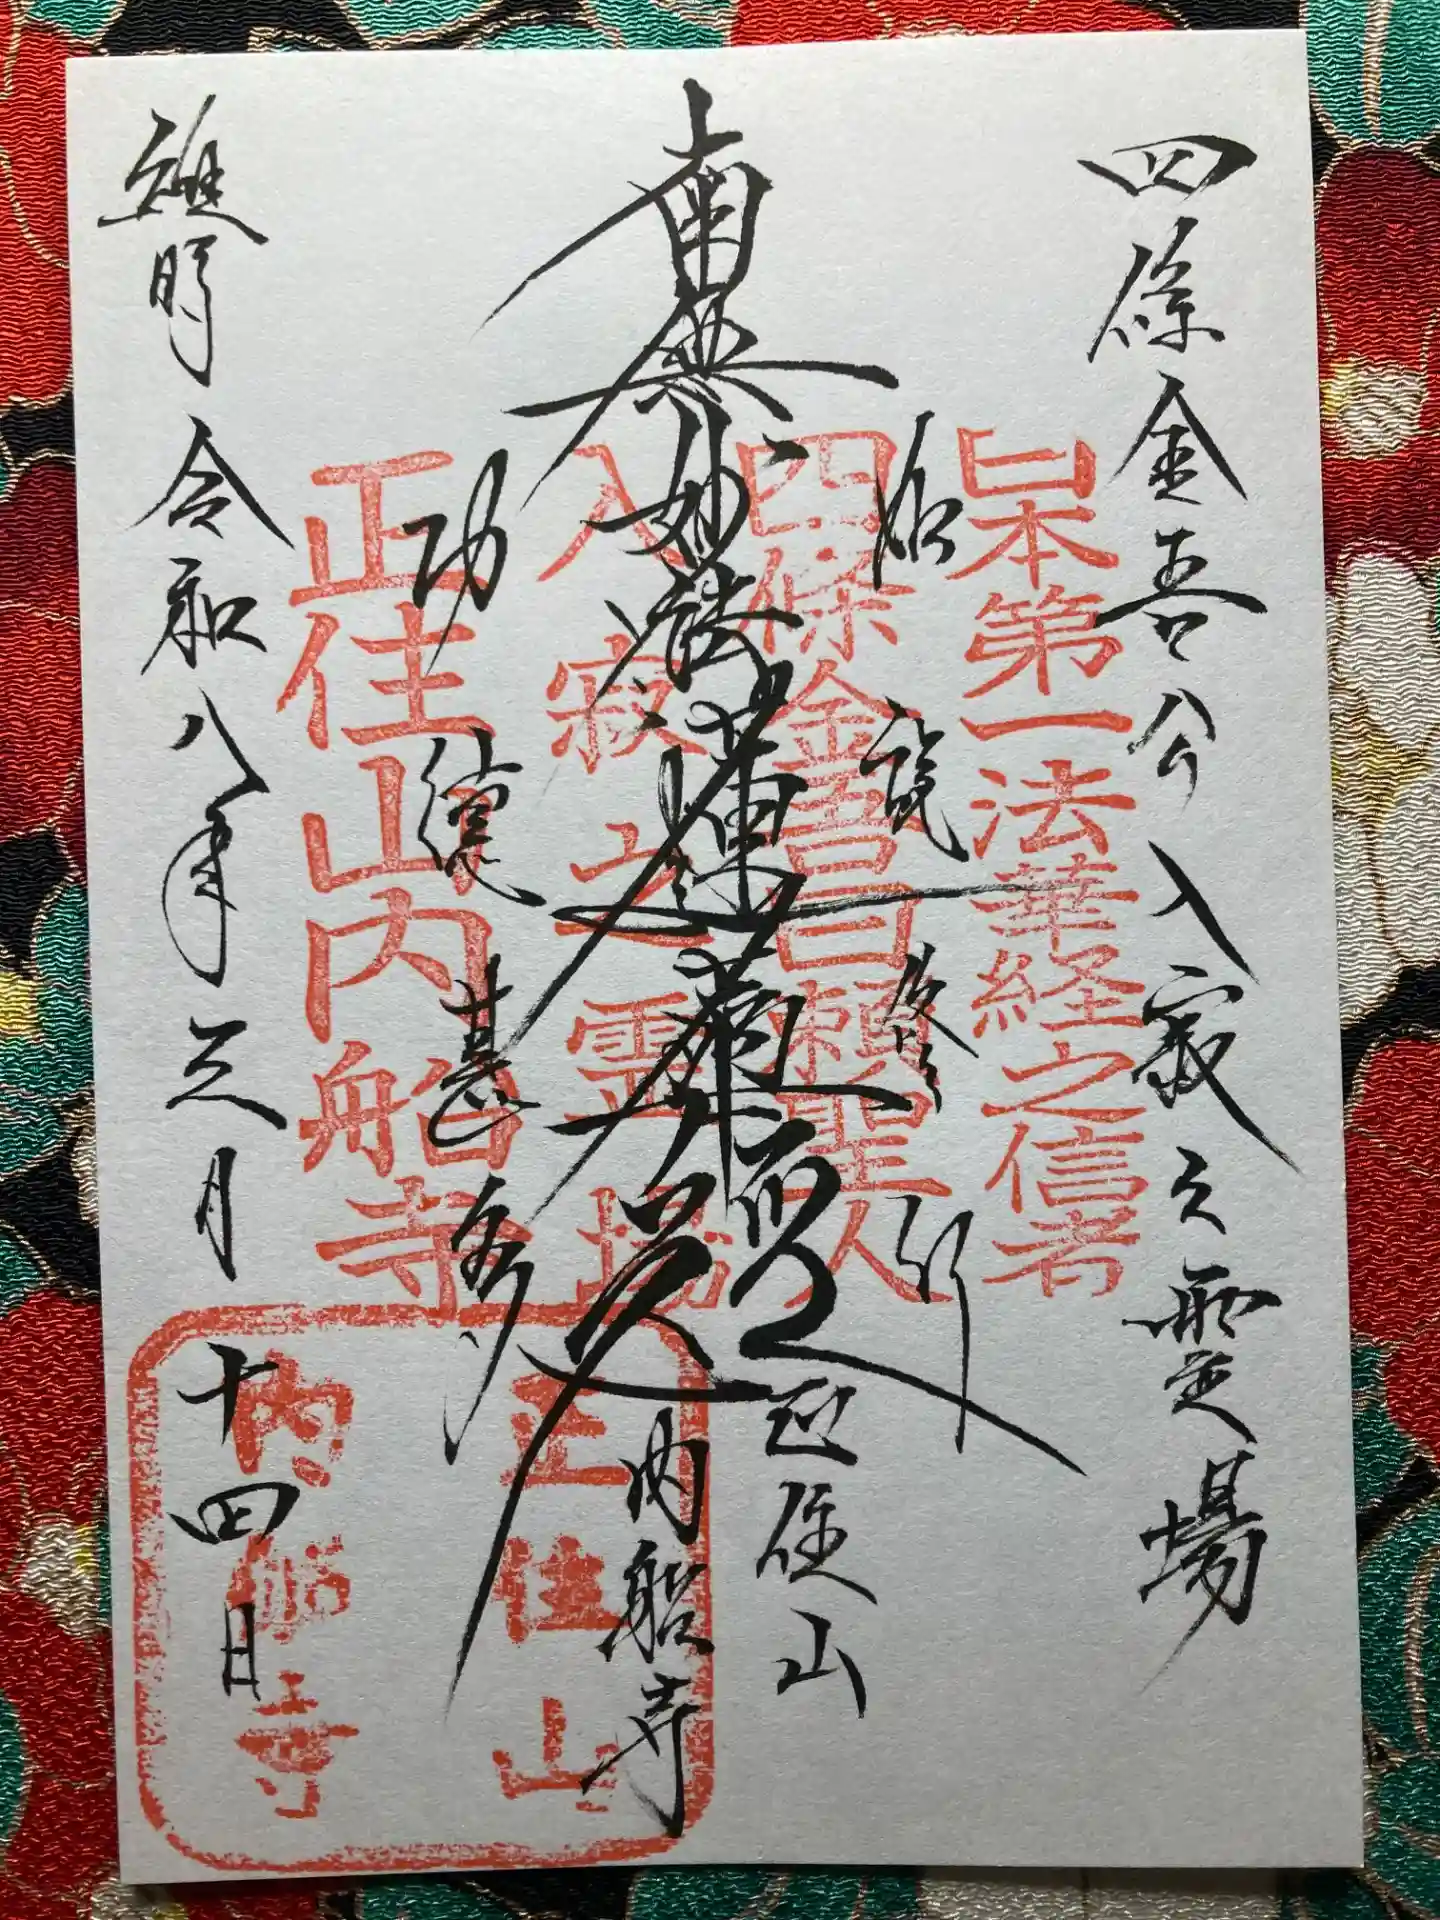 四條金吾公入寂之霊場
如説修行
南無妙法蓮華経
功徳甚多
正住山
内船寺
令和八年三月十四日
日本第一法華経之信者
四條金吾日頼聖人
入寂之霊場
正住山内船寺
正住山
内船寺